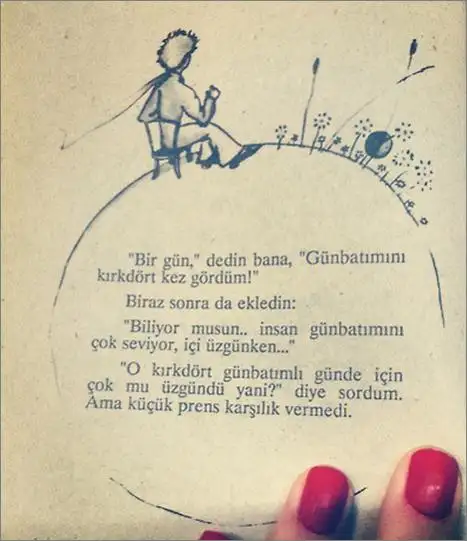 "Bir gün," dedin bana, "Günbatımını
kırkdört kez gördüm!"
Biraz sonra da ekledin:
"Biliyor musun.. insan günbatımını
çok seviyor, içi üzgünken..."
"O kırkdört günbatımlı günde için
çok mu üzgündü yani?" diye sordum.
Ama küçük prens karşılık vermedi.